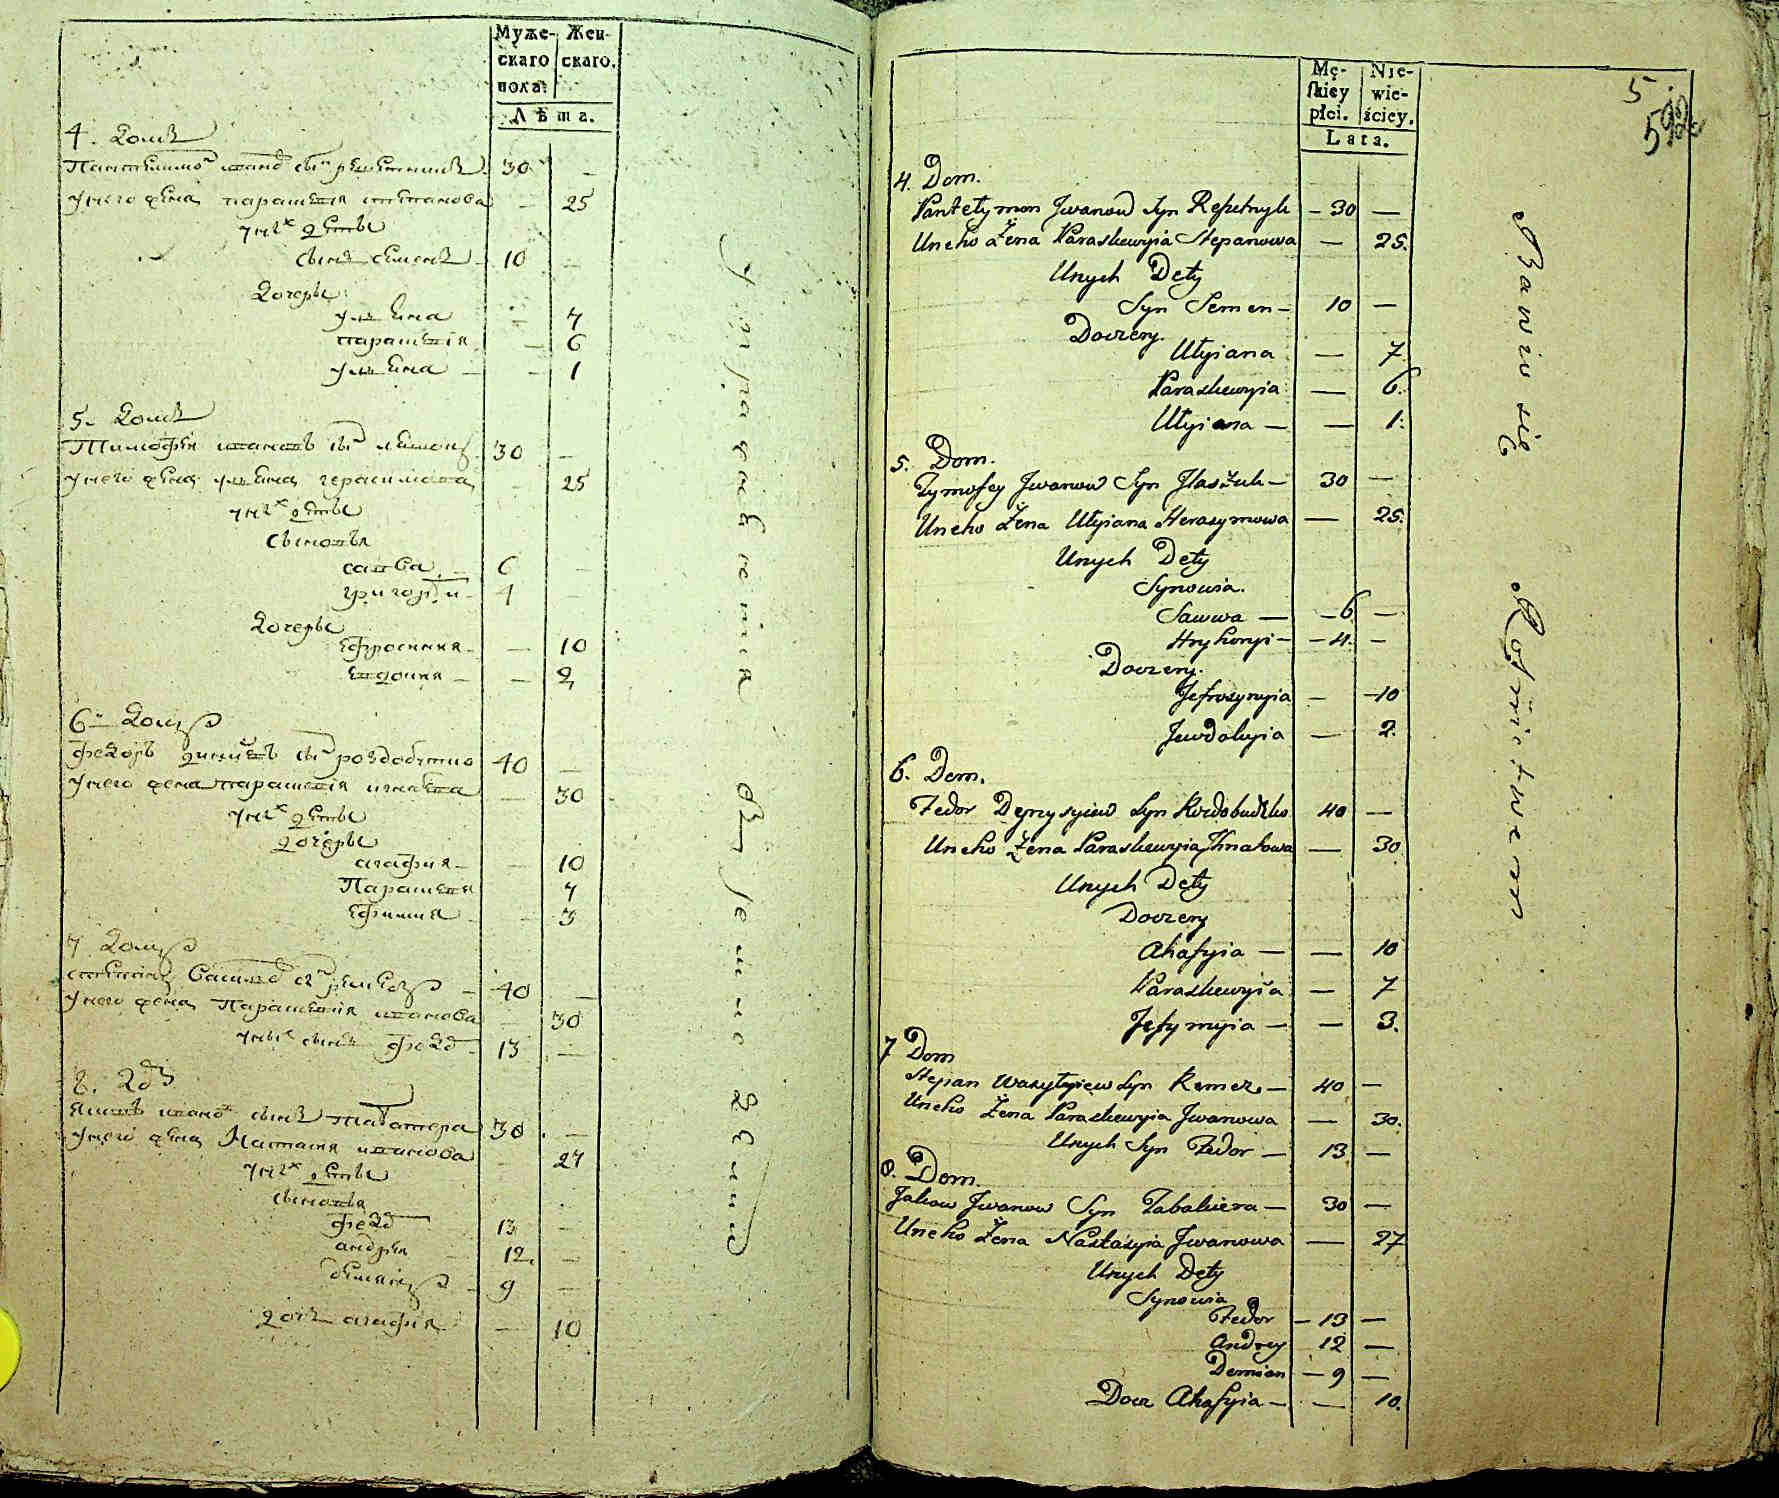 Муже-
скаго
пола.
Жен-
скаго.
Лѣта.
4. Домъ
30 –
У него жена парасковия степанова – 25
У них дети
Сынъ семенъ – 10 –
Дочеры
улияна – 7
парасковія – 6
улияна – 1
5. Домъ
Тимофей ивановъ сынъ 30 –
У него жена улияна герасимова – 25
У них дети
Сыновья
савва – 6 –
григорій – 4 –
Дочеры
ефросиния – – 10
евдокия – – 2
6. Домъ
федоръ сынъ роздобудко 40 –
У него жена парасковія игнатова – 30
У них дети
дочеры
агафия – – 10
Парасковия 7
ефимия – – 3
7 Домъ
40 –
У него жена Парасковия иванова – 30
У них сынъ федор – 13 –
8. Домъ
яковъ иванов сынъ табатера 30 –
У него жена Настасия иванова – 27
У них дети
сыновья
федор 13 –
андрей – 12. –
демиян – 9 –
дочь агафия – 10
Упражненія
Mę-
skiey
płci.
Nie-
wie-
ściey.
Lata.
5
4. Dom.
Pantełymon Jwanow Syn Reszetnyk – 30 –
Uneho Żena Paraskewyia Stepanowa – 25.
Unych Dety
Syn Semen – 10 –
Doczery.
Ułyiana – 7
Paraskewyia – 6.
Ułyiana – – 1.
5. Dom.
Tymofey Jwanow Syn – 30 –
Uneho Żena Ułyiana Herasymowa – 25.
Unych Dety
Synowia.
Sawwa – – 6 –
Hryhoryi – – 4. –
Doczery.
Jefrosynyia – – 10
Jewdokyia – 2.
6. Dom.
Fedor Denysyiew Syn Rozdobudko 40 –
Uneho Żena Paraskewyia Jhnatowa – 30
Unych Dety
Doczery
Ahafyia – – 10
Paraskewyia – 7
Jefymyia – – 3.
7 Dom
Stepan Wasylyiew Syn Remez – 40 –
Uneho Żena Paraskewyia Jwanowa – 30.
Unych Syn Fedor – 13 –
8. Dom.
Jakow Jwanow Syn Tabakiera – 30 –
Uneho Żena Nastasyia Jwanowa – 27
Unych Dety
Synowia
Fedor – 13 –
Andrey 12 –
Demian – 9 –
Docz Ahafyia – – 10.
Bawiw się Rolnictwem